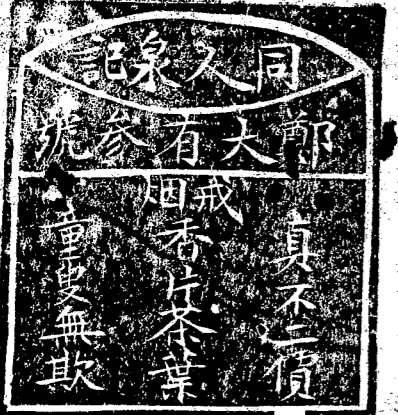 同久泉記
鄭大有参號
真不二價
戒烟香片茶葉
童叟無欺